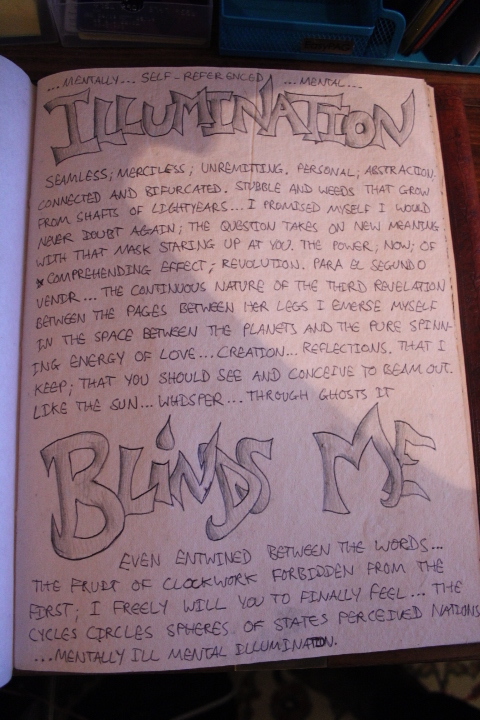 ...MENTALLY... SELF-REFERENCED ...MENTAL...
ILLUMINATION
SEAMLESS; MERCILESS; UNREMITTING. PERSONAL; ABSTRACTION.
CONNECTED AND BIFURCATED. STUBBLE AND WEEDS THAT GROW
FROM SHAFTS OF LIGHTYEARS... I PROMISED MYSELF I WOULD
NEVER DOUBT AGAIN; THE QUESTION TAKES ON NEW MEANING
WITH THAT MASK STARING UP AT YOU. THE POWER; NOW; OF
COMPREHENDING EFFECT; REVOLUTION. PARA EL SEGUNDO
VENIR... THE CONTINUOUS NATURE OF THE THIRD REVELATION
BETWEEN THE PAGES BETWEEN HER LEGS I EMERSE MYSELF
IN THE SPACE BETWEEN THE PLANETS AND THE PURE SPINN-
ING ENERGY OF LOVE... CREATION... REFLECTIONS. THAT I
KEEP; THAT YOU SHOULD SEE AND CONCEIVE TO BEAM OUT.
LIKE THE SUN... WHISPER... THROUGH GHOSTS IT
BLINDS ME
EVEN ENTWINED BETWEEN THE WORDS...
THE FRUIT OF CLOCKWORK FORBIDDEN FROM THE
FIRST; I FREELY WILL YOU TO FINALLY FEEL... THE
CYCLES CIRCLES SPHERES OF STATES PERCEIVED NATIONS
...MENTALLY ILL MENTAL ILLUMINATION.